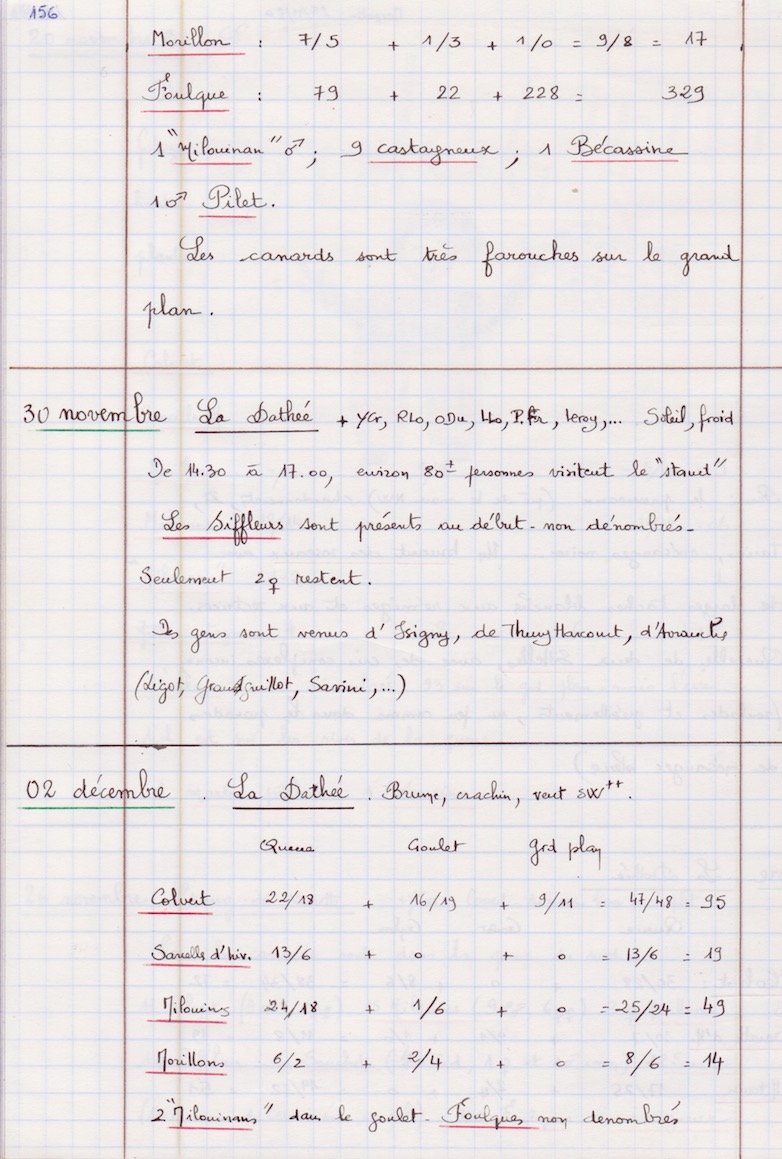 156
Morillon : 7/5 + 1/3 + 1/0 = 9/8 = 17
Foulque : 79 + 22 + 228 = 329
1 "Milouinan" ♂ ; 9 castagneux ; 1 Bécassine
1 ♂ Pilet.
Les canards sont très farouches sur le grand
plan.
30 novembre La Dathée + YCr, RLo, ODu, LLo, Leroy, ... Soleil, froid
De 14.30 à 17.00, environ 80± personnes visitent le "stand"
Les Siffleurs sont présents au début - non dénombrés -
Seulement 2♀ restent.
Des gens sont venus d'Isigny, de Thury Harcourt, d'Avranches
(Ligot, Grandguillot, Savini, ...)
02 décembre . La Dathée . Brume, crachin, vent SW++.
Queue Goulet grd plan
Colvert 22/18 + 16/19 + 9/11 = 47/48 = 95
Sarcelles d'hiv. 13/6 + 0 + 0 = 13/6 = 19
Milouins 24/18 + 1/6 + 0 = 25/24 = 49
Morillons 6/2 + 2/4 + 0 = 8/6 = 14
2 "Milouinans" dans le goulet - Foulques non dénombrés